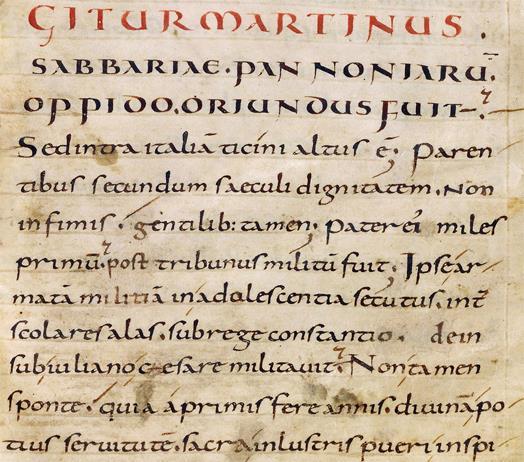 GITUR MARTINUS.
SABBARIAE. PANNONIARŪ.
OPPIDO. ORIUNDUS FUIT.
Sed intra italiā ticini altus ē, paren
tibus secundum saeculi dignitatem. Non
infimis. gentilib: tamen, pater ei miles
primū. post tribunus militū fuit, Ipse ar
matā militiā in adolescentia secutus. int̄
scolares alas. sub rege constantio. dein
sub iuliano caesare militavit. Non tamen
sponte. quia a primis fere annis. divinā po
tius servitutē. sacra inlustris pueri inspi